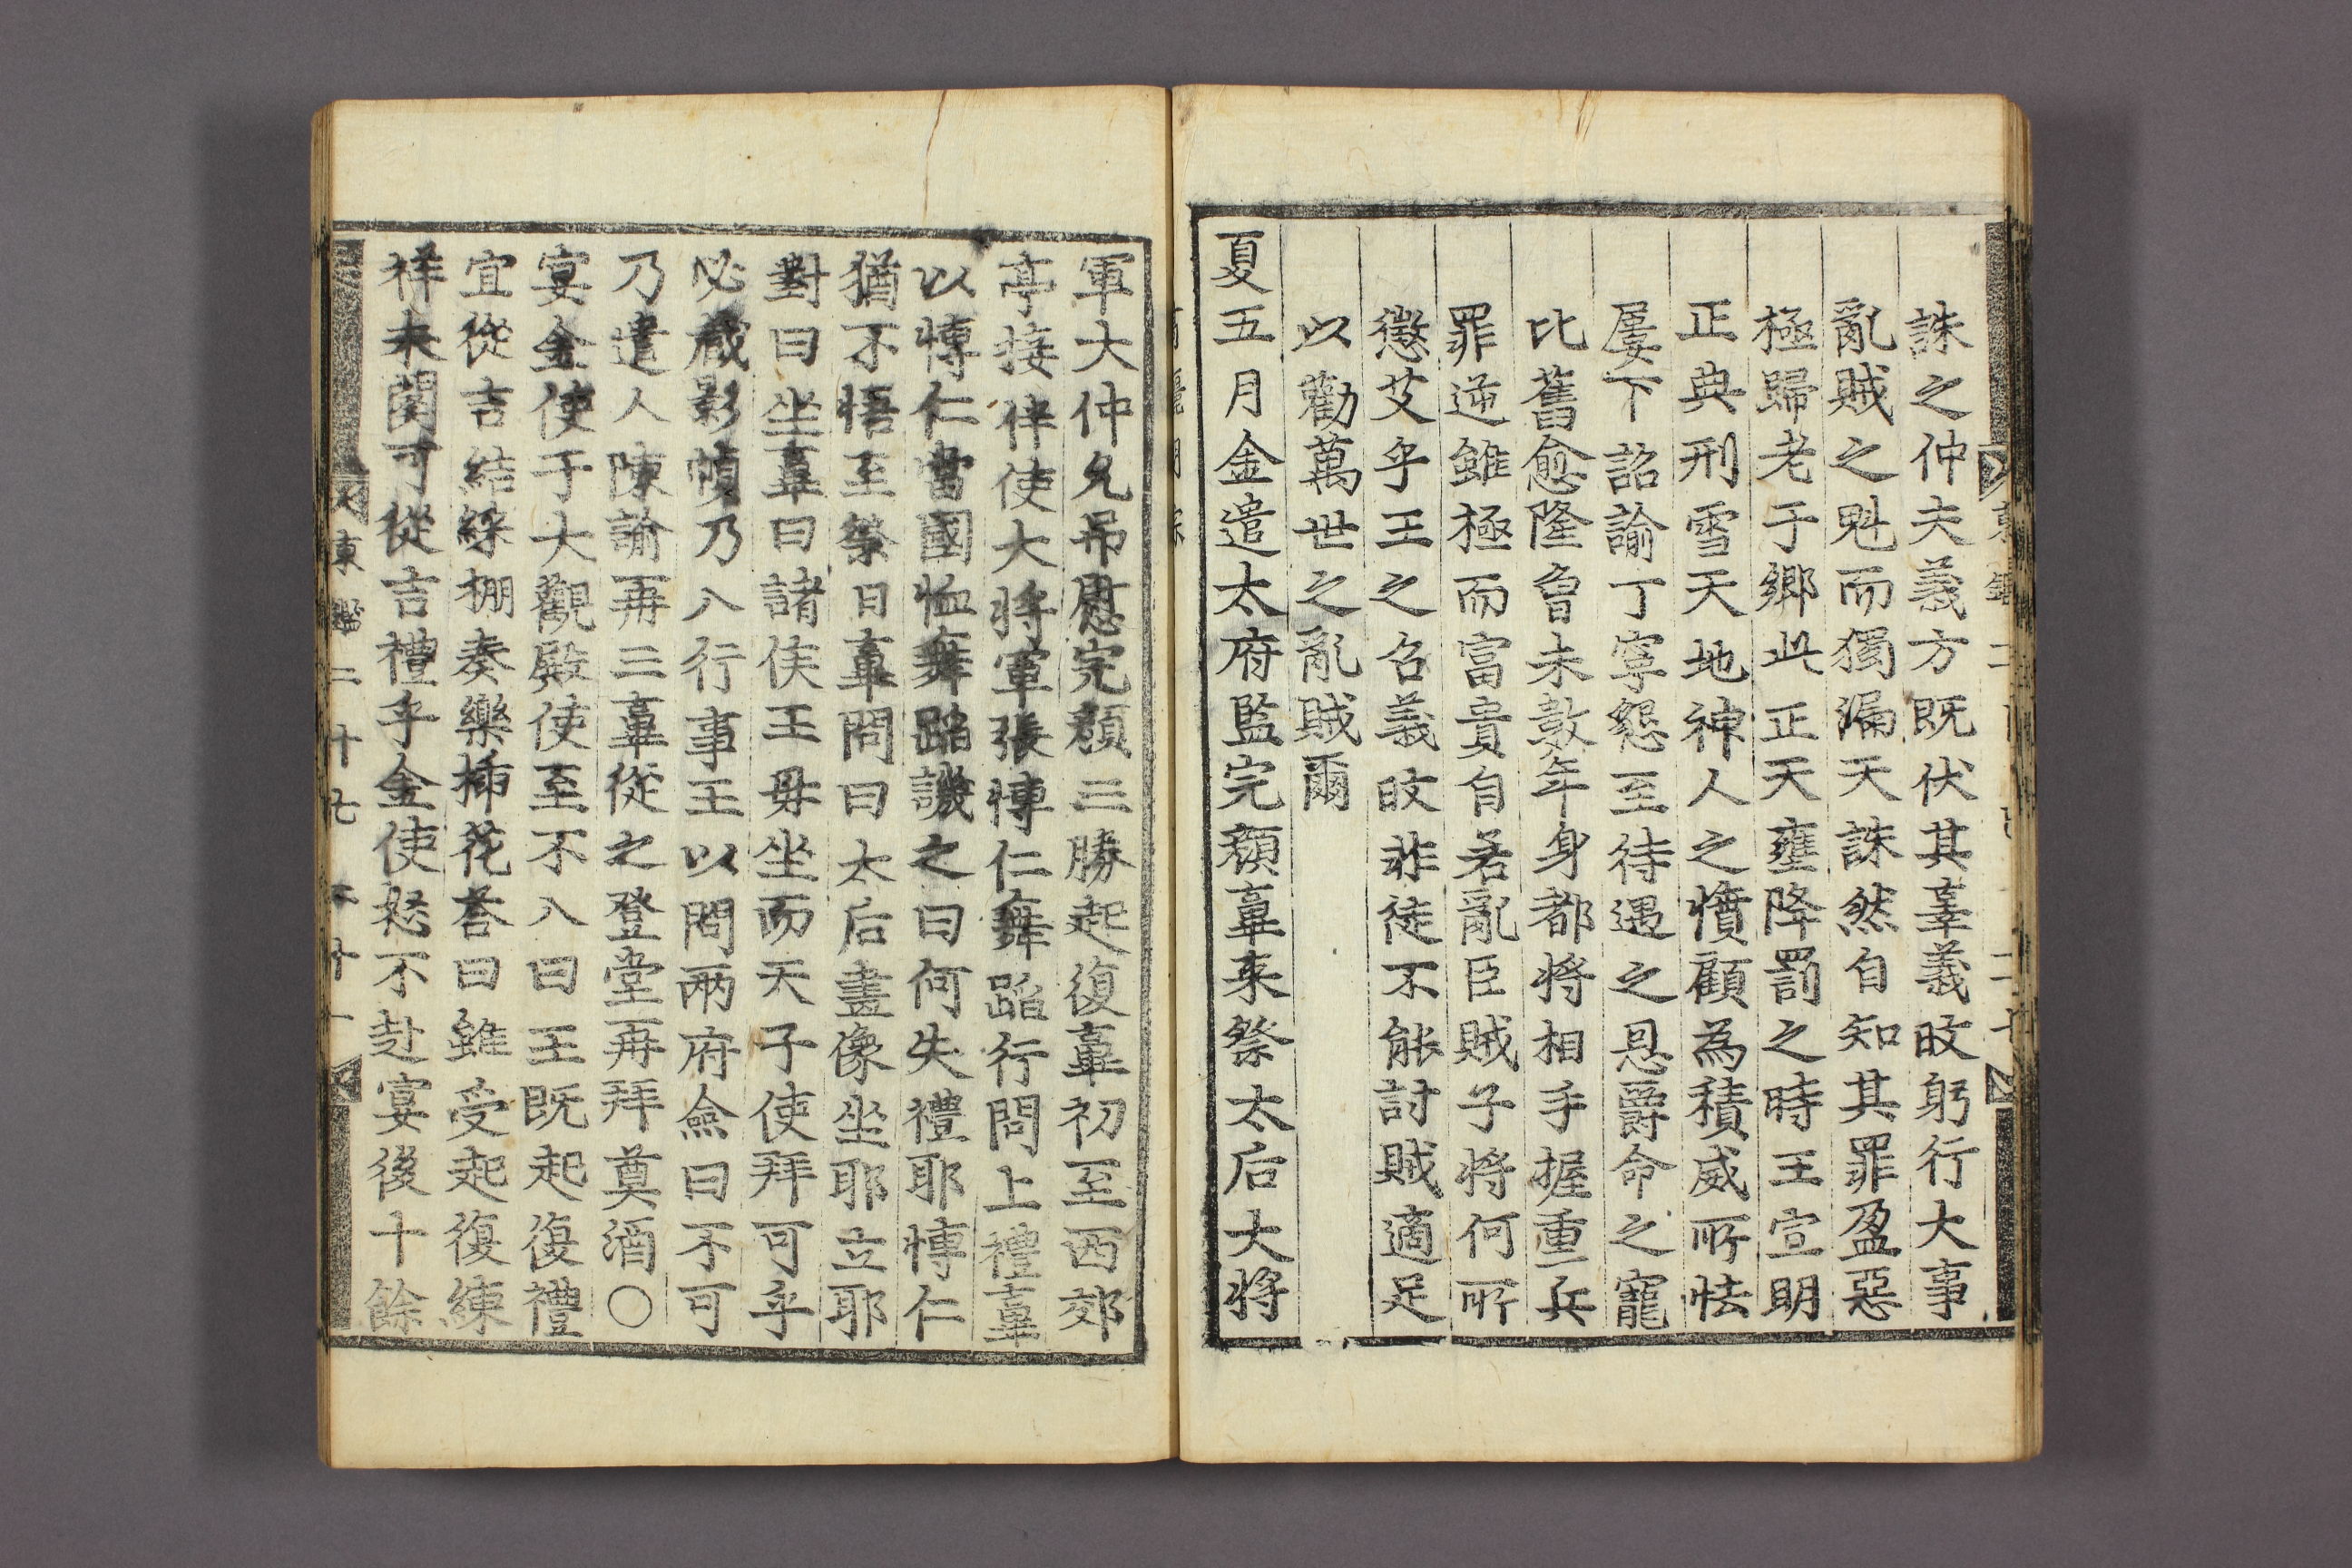 誅之仲夫義方既伏其辜義旼躬行大事
亂賊之魁而獨漏天誅然自知其罪盈惡
極歸老于鄉此正天壅降罰之時王宣明
正典刑雪天地神人之憤顧為積威所怯
屢下詔諭丁寧懇至待遇之恩爵命之寵
比舊愈隆曾未數年身都將相手握重兵
罪逆雖極而富貴自若亂臣賊子將何所
懲艾乎王之名義旼非徒不能討賊適足
以勸萬世之亂賊爾
夏五月金遣太府監完顏𪏭来祭太后大將
軍大仲允吊慰完顏三勝起復𪏭初至西郊
亭接伴使大將軍張博仁舞蹈行問上禮𪏭
以博仁當國恤舞蹈譏之曰何失禮耶博仁
猶不悟至祭日𪏭問曰太后畫像坐耶立耶
對曰坐𪏭曰諸侯王毋坐而天子使拜可乎
必藏影幀乃入行事王以問兩府僉曰不可
乃遣人陳諭再三𪏭從之登堂再拜奠酒〇
宴金使于大觀殿使至不入曰王既起復禮
宜從吉結綵棚奏樂揷花荅曰雖受起復練
祥未闋可從吉禮乎金使怒不赴宴後十餘
東鑑二十七 六十一